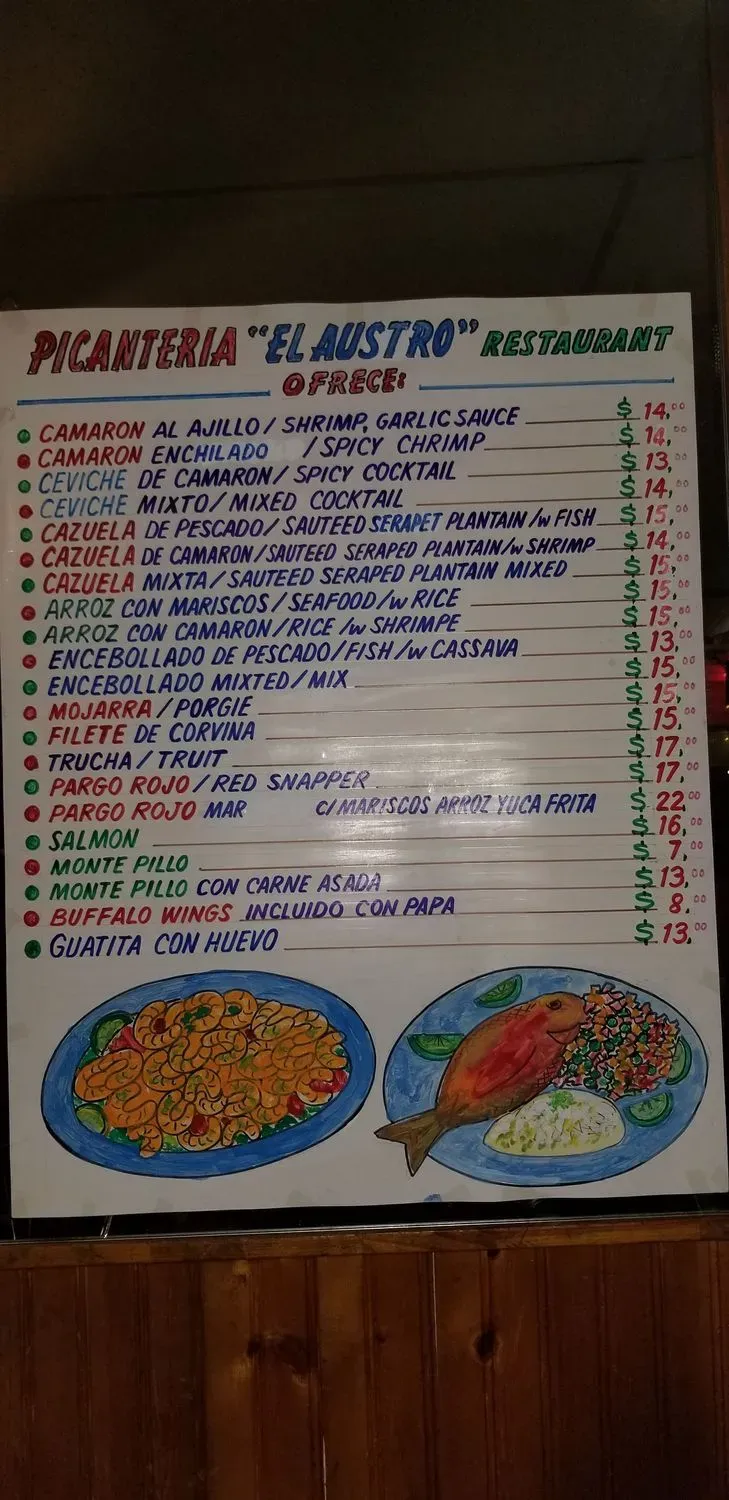 PICANTERIA "EL AUSTRO" RESTAURANT
OFRECE:
CAMARON AL AJILLO / SHRIMP, GARLIC SAUCE $ 14,00
CAMARON ENCHILADO / SPICY CHRIMP $ 14,00
CEVICHE DE CAMARON / SPICY COCKTAIL $ 13,00
CEVICHE MIXTO / MIXED COCKTAIL $ 14,00
CAZUELA DE PESCADO / SAUTEED SERAPET PLANTAIN /w FISH $ 15,00
CAZUELA DE CAMARON / SAUTEED SERAPED PLANTAIN /w SHRIMP $ 14,00
CAZUELA MIXTA / SAUTEED SERAPED PLANTAIN MIXED $ 15,00
ARROZ CON MARISCOS / SEAFOOD /w RICE $ 15,00
ARROZ CON CAMARON / RICE /w SHRIMPE $ 15,00
ENCEBOLLADO DE PESCADO / FISH /w CASSAVA $ 13,00
ENCEBOLLADO MIXTED / MIX $ 15,00
MOJARRA / PORGIE $ 15,00
FILETE DE CORVINA $ 15,00
TRUCHA / TRUIT $ 17,00
PARGO ROJO / RED SNAPPER $ 17,00
PARGO ROJO MAR C/ MARISCOS ARROZ YUCA FRITA $ 22,00
SALMON $ 16,00
MONTE PILLO $ 7,00
MONTE PILLO CON CARNE ASADA $ 13,00
BUFFALO WINGS INCLUIDO CON PAPA $ 8,00
GUATITA CON HUEVO $ 13,00